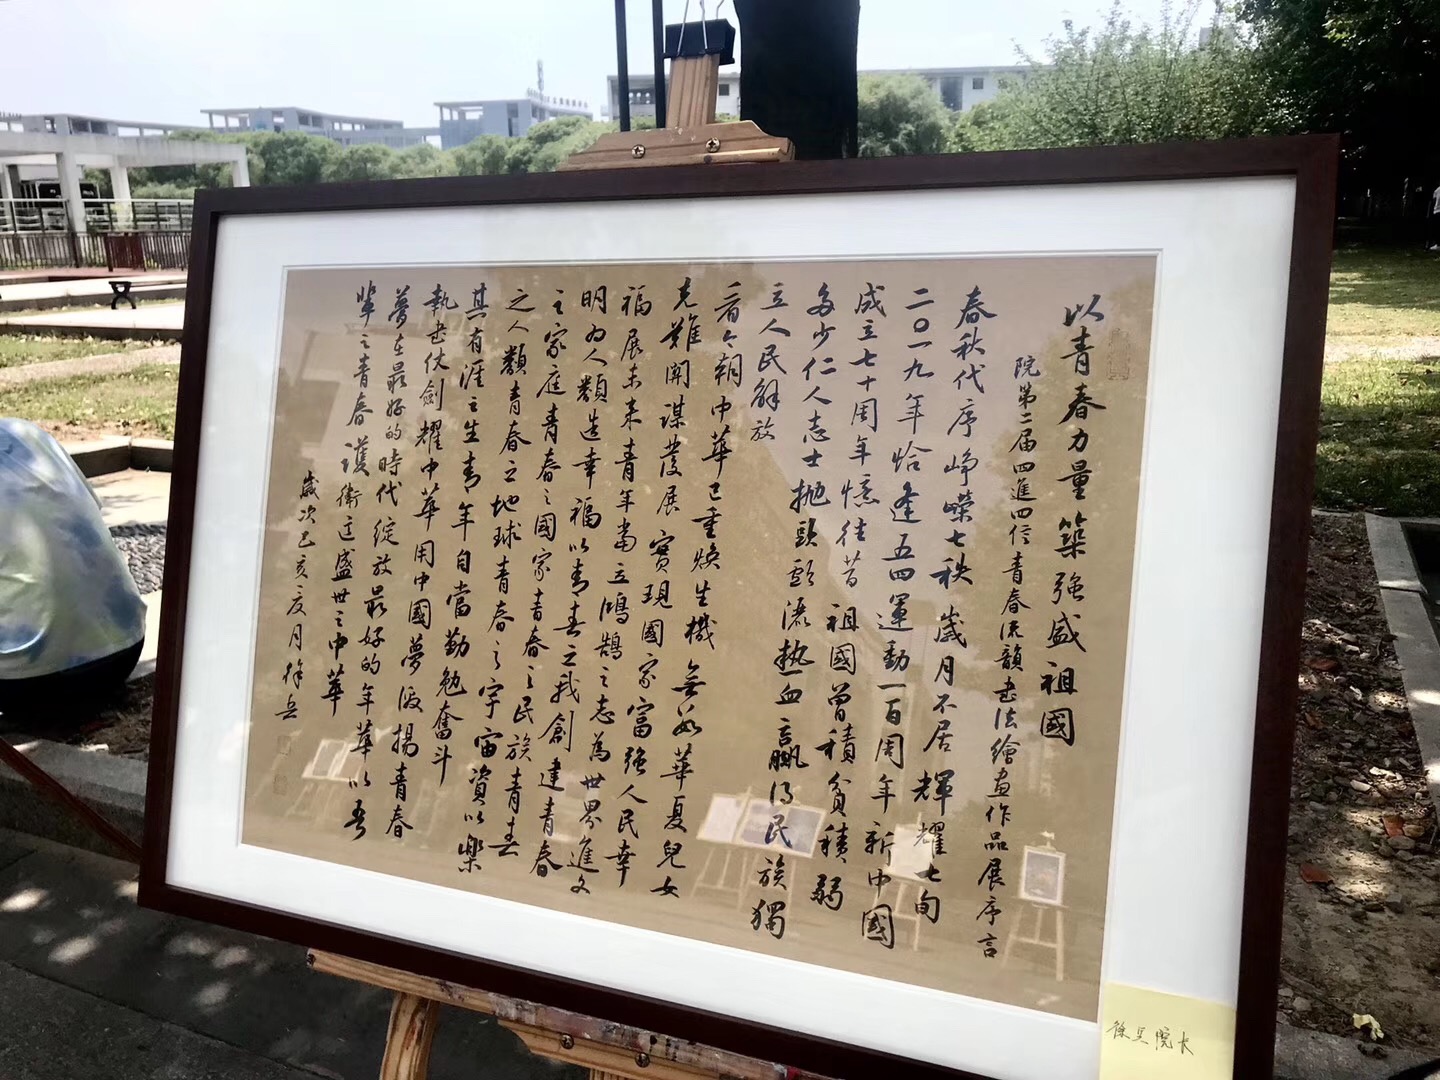 以青春力量築強盛祖國
院第二届四進四信青春流韻書法繪畫作品展序言
春秋代序崢嶸七秩歲月不居輝耀七旬
二〇一九年恰逢五四運動一百周年新中國
成立七十周年憶往昔祖國曾積貧積弱
多少仁人志士抛頭顱灑热血赢得民族獨
立人民解放
看今朝中華已重焕生機無數華夏兒女
克難開謀發展實現國家富強人民幸
福展未来青年當立鴻鵠之志為世界進文
明为人類造幸福以青春之我創建青春
之家庭青春之國家青春之民族青春
之人類青春之地球青春之宇宙資以樂
其有涯之生青年自當勤勉奮斗
執書仗劍耀中華用中國夢激揚青春
夢在最好的時代绽放最好的年華以吾
輩之青春護衛這盛世之中華
歲次己亥夏月徐
徐 院长